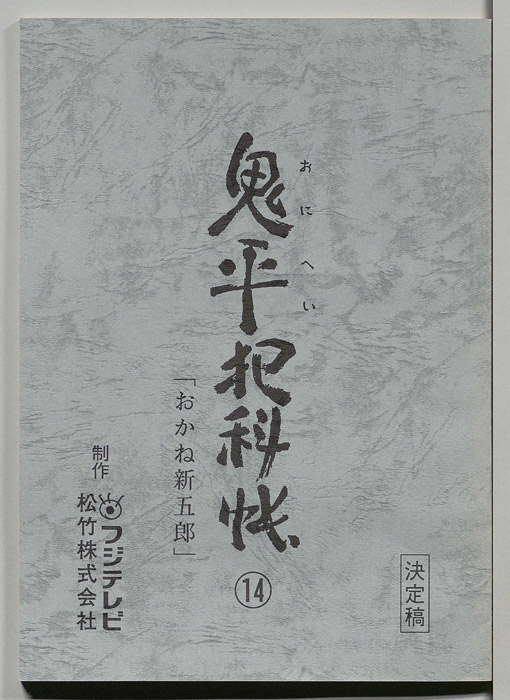 おにへい
鬼平犯科帳
⑭
「おかね新五郎」
決定稿
制作
フジテレビ
松竹株式会社